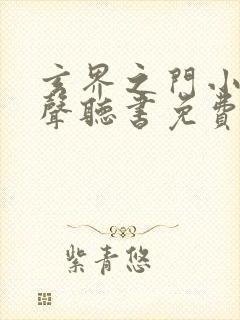 玄界之門小
聲聽書免費
紫青悠